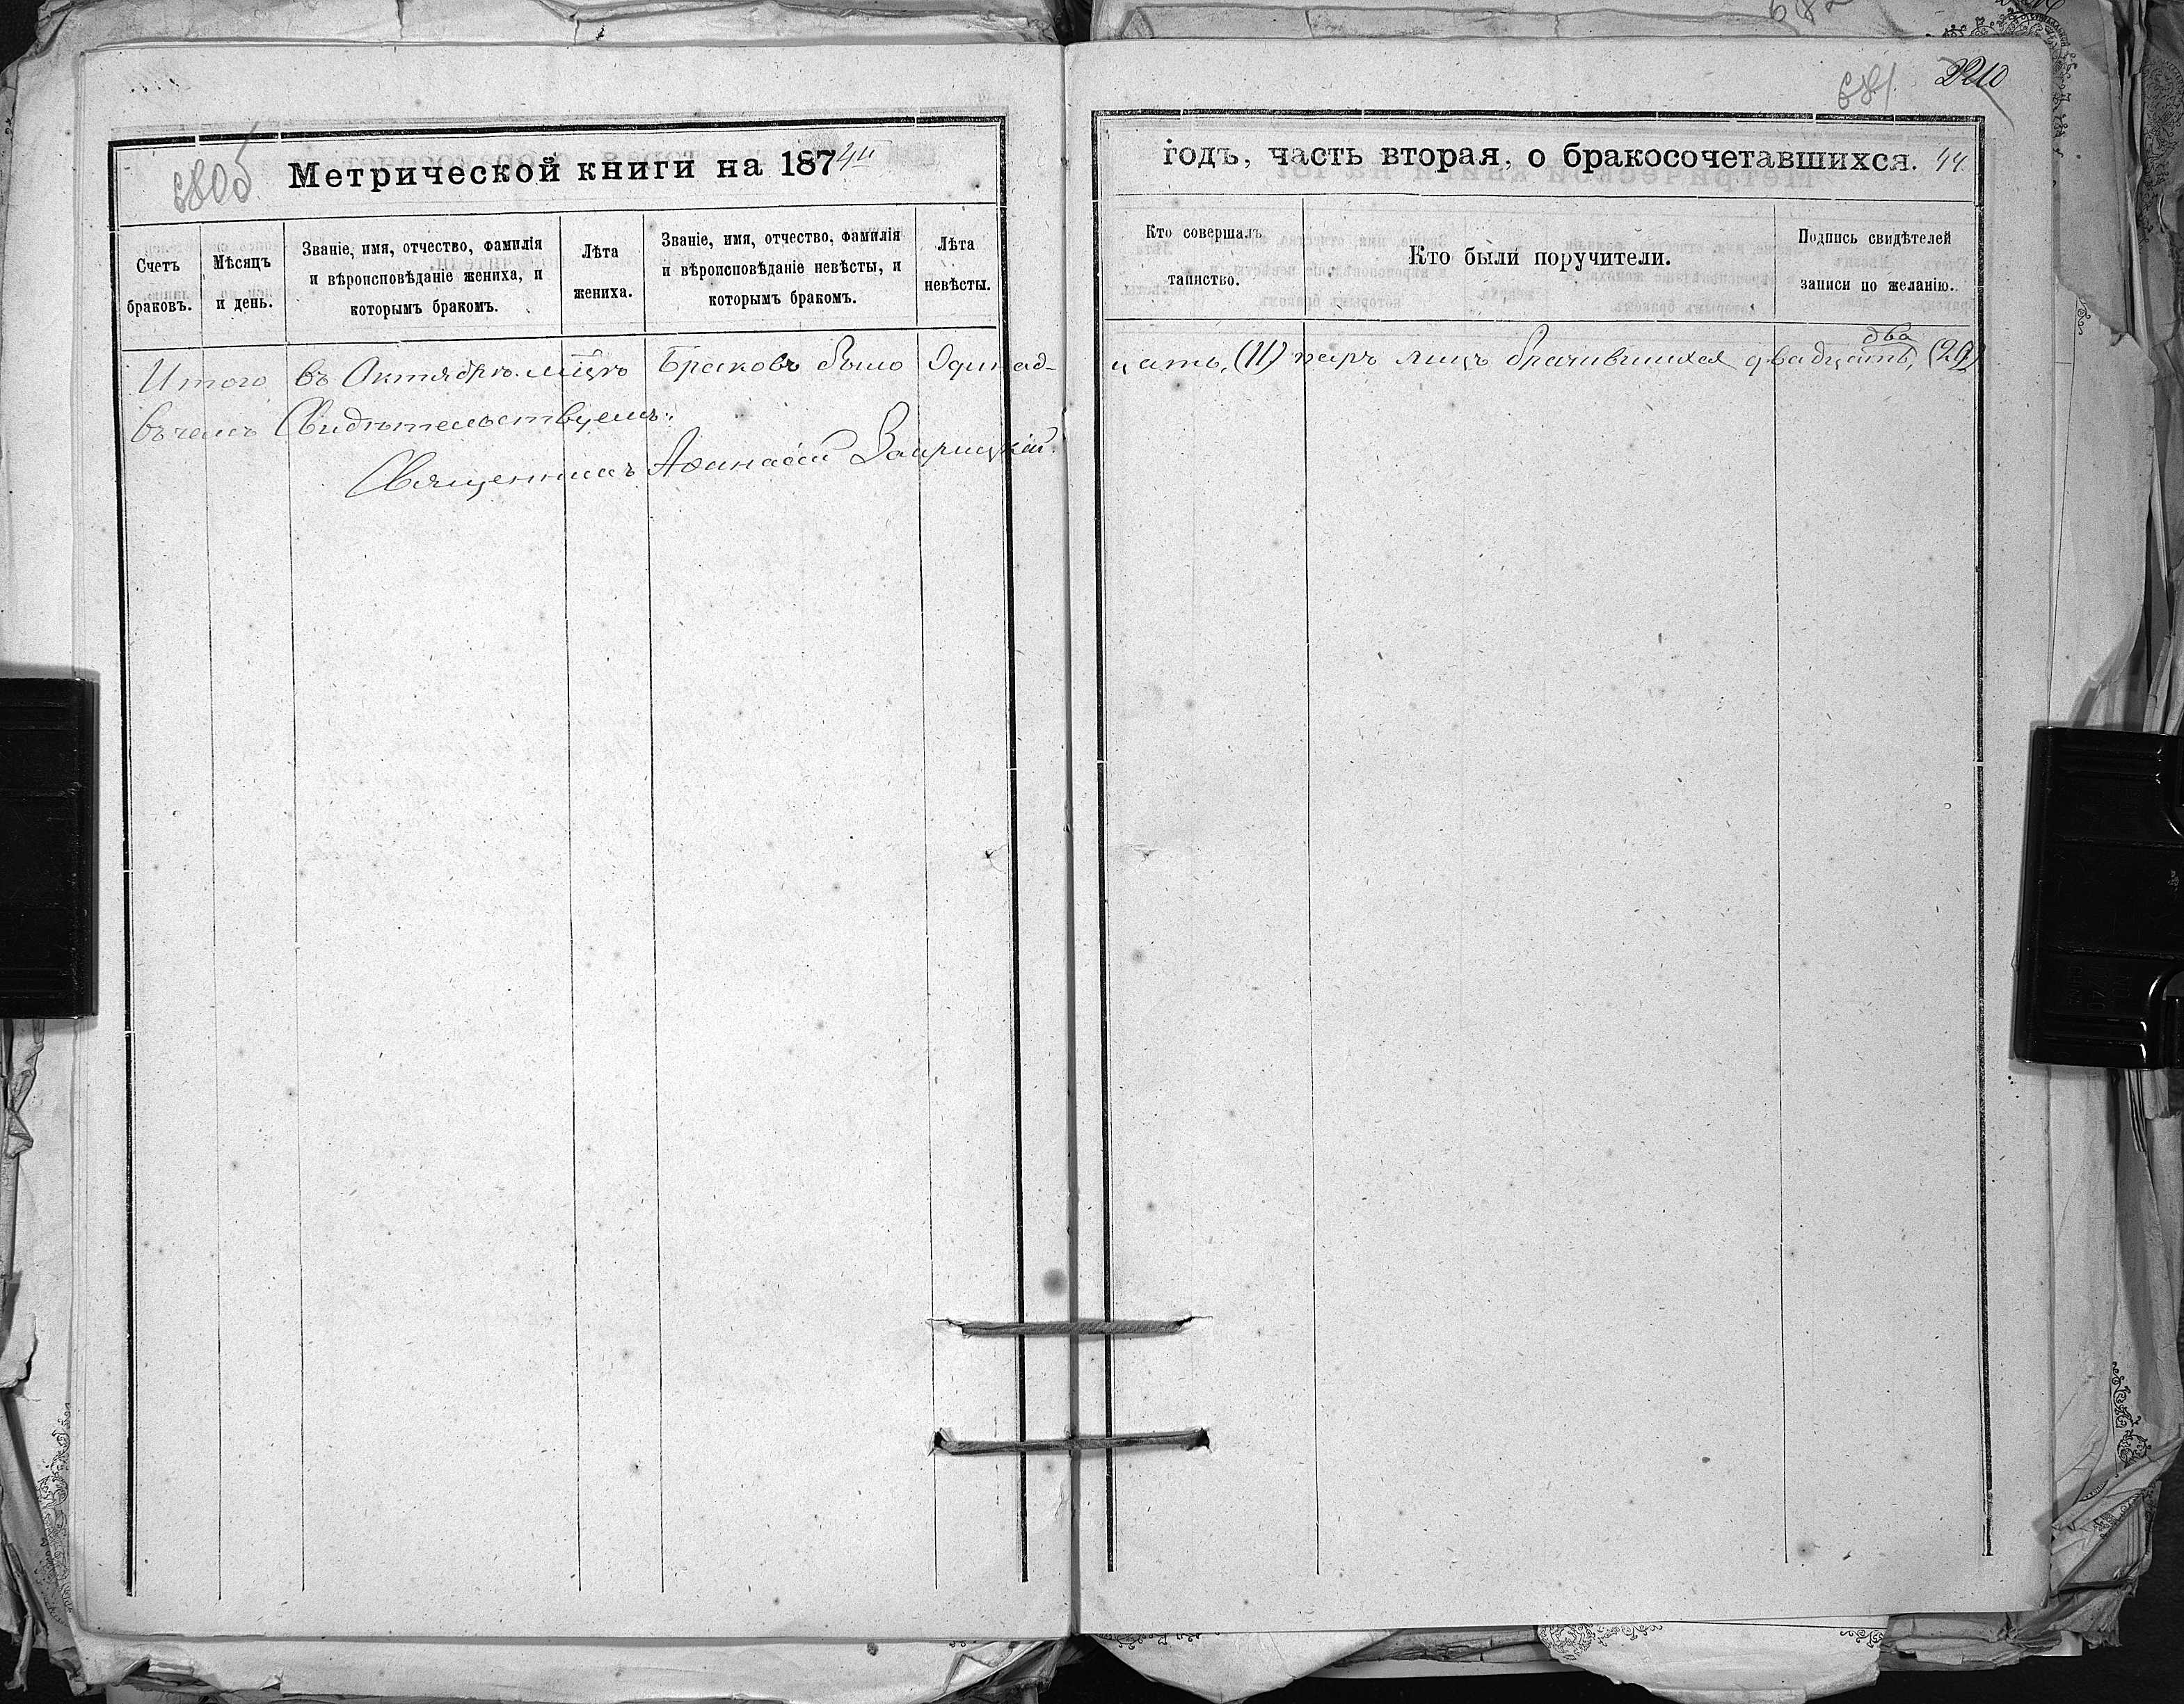 680об
Метрической книги на 1874й
Счетъ браковъ.
Мѣсяцъ и день.
Званіе, имя, отчество, фамилія и вѣроисповѣданіе жениха, и которымъ бракомъ.
Лѣта жениха.
Званіе, имя, отчество, фамилія и вѣроисповѣданіе невѣсты, и которымъ бракомъ.
Лѣта невѣсты.
Итого въ Октябрѣ мцѣ Браковъ было Одинад-
въ чемъ Свидѣтельствуемъ:
Священникъ Аѳанасій
681
годъ, часть вторая, о бракосочетавшихся. 44.
Кто совершалъ таинство.
Кто были поручители.
Подпись свидѣтелей записи по желанію.
два
цать, (11) паръ лицъ брачившихся двадцать,